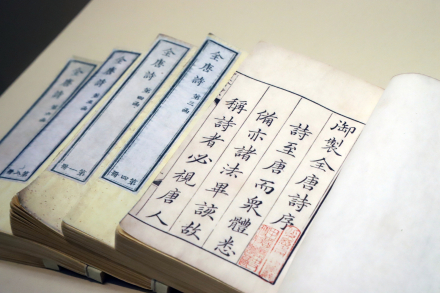 御製全唐詩序
詩至唐而衆體悉
備亦諸法畢該故
稱詩者必視唐人
全唐詩 第三函
第四冊
全唐詩 第四函
第一冊
全唐詩
全唐詩